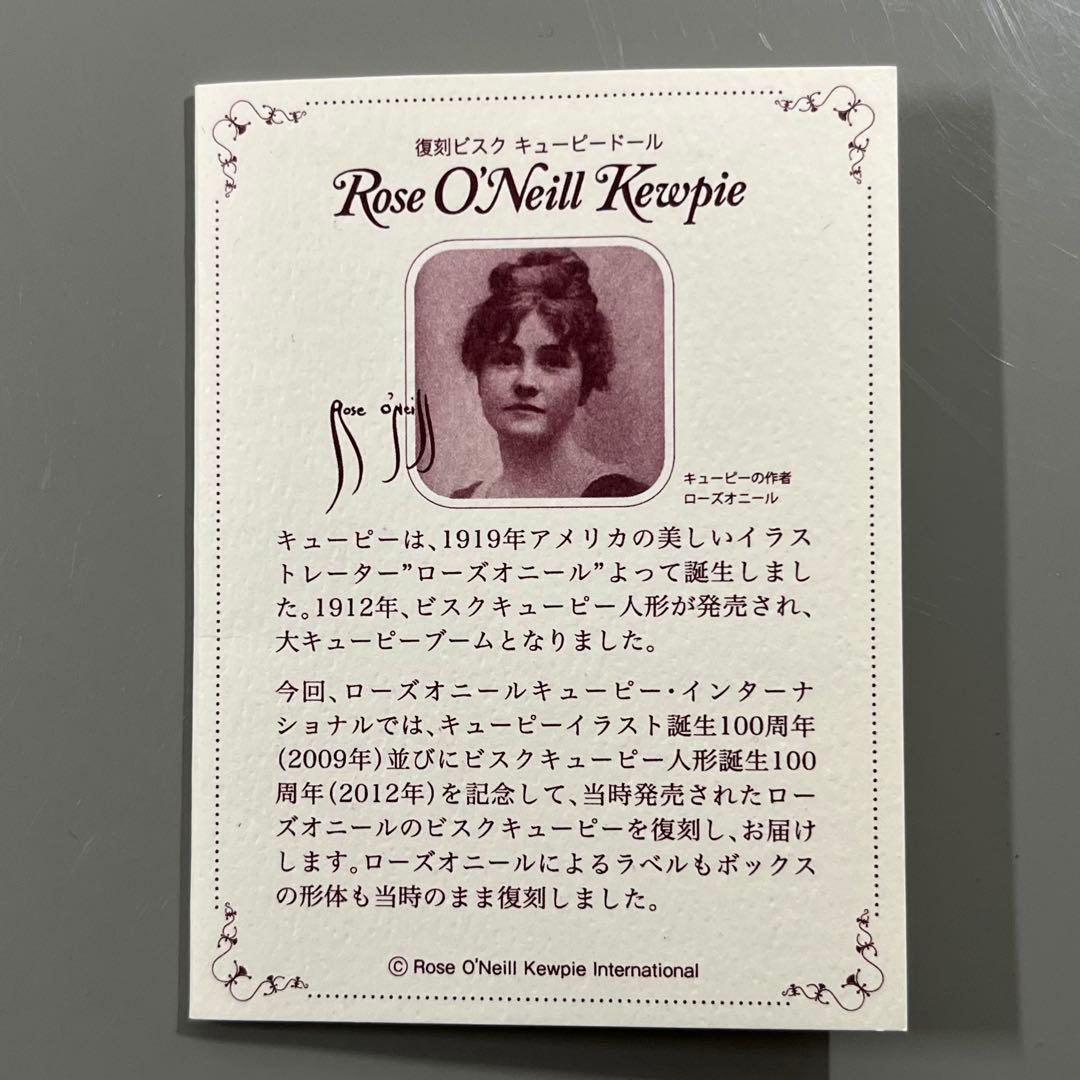 復刻ビスク キューピードール
Rose O'Neill Kewpie
Rose O'Neill
キューピーの作者
ローズオニール
キューピーは、1919年アメリカの美しいイラス
トレーター”ローズオニール”よって誕生しまし
た。1912年、ビスクキューピー人形が発売され、
大キューピーブームとなりました。
今回、ローズオニールキューピー・インターナ
ショナルでは、キューピーイラスト誕生100周年
(2009年)並びにビスクキューピー人形誕生100
周年(2012年)を記念して、当時発売されたロー
ズオニールのビスクキューピーを復刻し、お届け
します。ローズオニールによるラベルもボックス
の形体も当時のまま復刻しました。
© Rose O'Neill Kewpie International